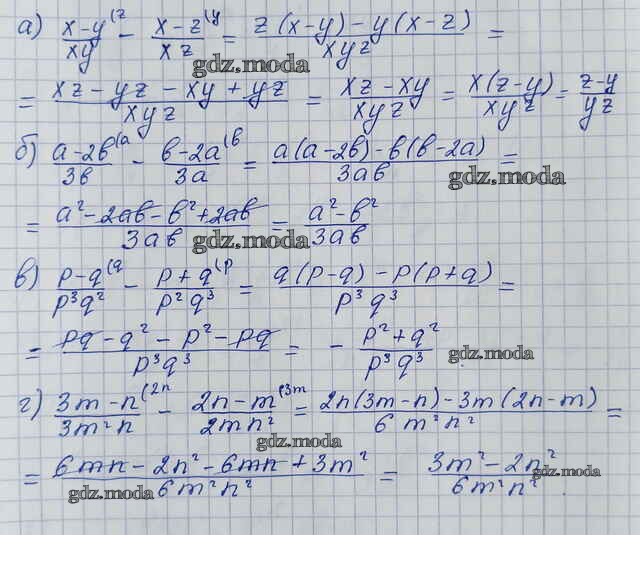 а) (x-y)/(xy) (z - (x-z)/(xz) (y = (z(x-y) - y(x-z))/(xyz) =
gdz.moda
= (xz - yz - xy + yz)/(xyz) = (xz - xy)/(xyz) = (x(z-y))/(xyz) = (z-y)/(yz)
б) (a-2b)/(3b) (a - (b-2a)/(3a) (b = (a(a-2b) - b(b-2a))/(3ab) =
gdz.moda
= (a² - 2ab - b² + 2ab)/(3ab) = (a² - b²)/(3ab)
gdz.moda
в) (p-q)/(p³q²) (q - (p+q)/(p²q³) (p = (q(p-q) - p(p+q))/(p³q³) =
gdz.moda
= (pq - q² - p² - pq)/(p³q³) = - (p² + q²)/(p³q³)
gdz.moda
г) (3m-n)/(3m²n) (2n - (2n-m)/(2mn²) (3m = (2n(3m-n) - 3m(2n-m))/(6m²n²) =
gdz.moda
= (6mn - 2n² - 6mn + 3m²)/(6m²n²) = (3m² - 2n²)/(6m²n²).
gdz.moda
gdz.moda